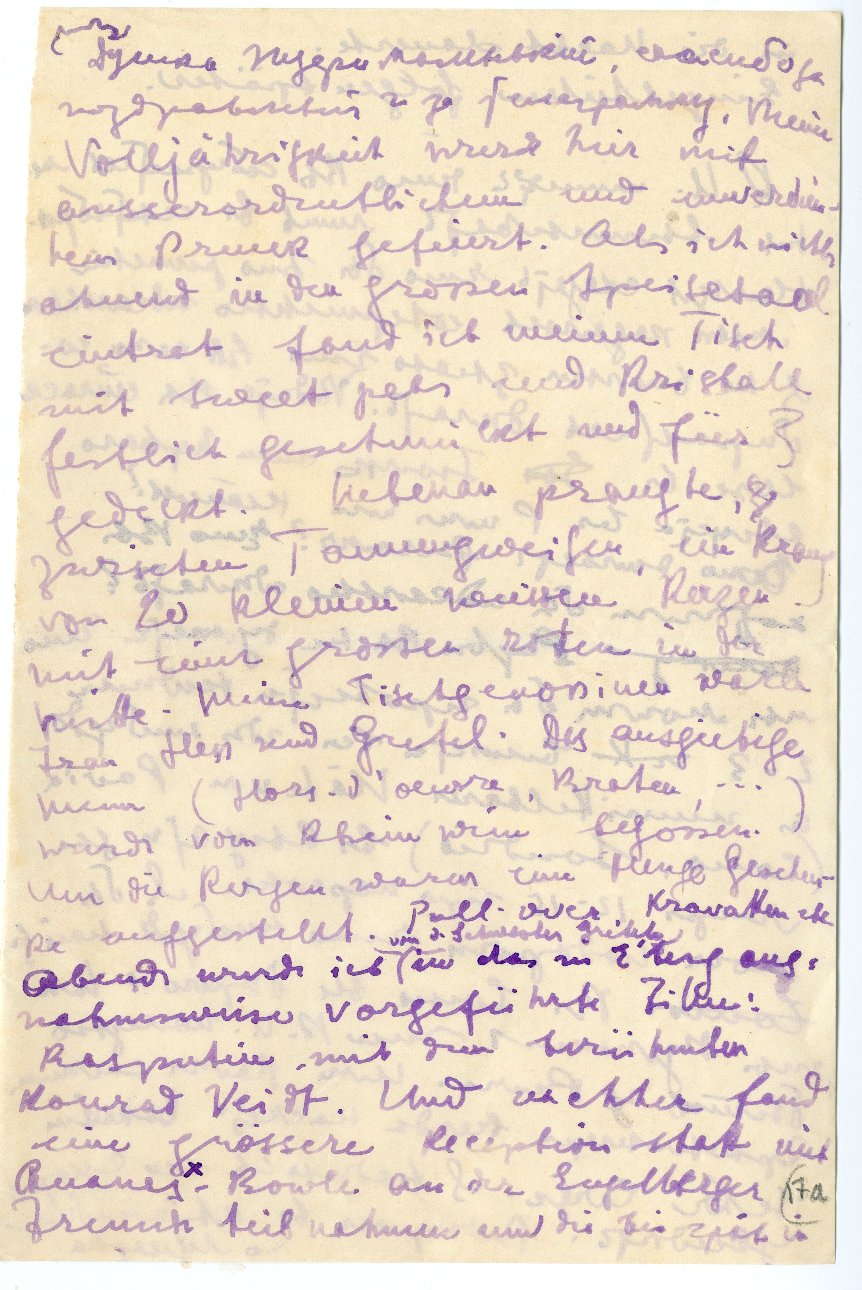 Душка Индеримаменький, спасибо за
поздравления и за телеграмму. Meine
Volljährigkeit wurde hier mit
ausserordentlichem und unverdien-
tem Prunk gefeiert. Als ich nichts
ahnend in den grossen Speisesaal
eintrat fand ich meinen Tisch
mit sweet peas und Kristall
festlich geschmückt und für 3
gedeckt. Nebenan prangte,
zwischen Tannenzweigen, ein Kranz
von 20 kleinen weissen Kerzen
mit einer grossen roten in der
Mitte. Meine Tischgenossinen waren
Frau Hess und Gretel. Das ausgiebige
Menu (Hors-d'oeuvre, Braten, ...)
wurde vom Rheinwein begossen.
Um die Kerzen waren eine Menge Geschen-
ke aufgestellt. Pull-over, Kravatten etc
von d. Schwester Gretels
Abends wurde ich (in das in E'berg aus-
nahmsweise vorgeführte Film:
Rasputin, mit dem berühmten
Konrad Veidt. Und nachher fand
eine grössere Reception statt mit
Ananas x - Bowle an der Engelberger
Freunde teil nahmen und die bis spät in
17a